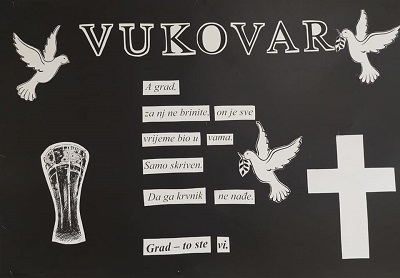 VUKOVAR
A grad,
za nj ne brinite, on je sve
vrijeme bio u vama.
Samo skriven.
Da ga krvnik ne nađe.
Grad – to ste vi.